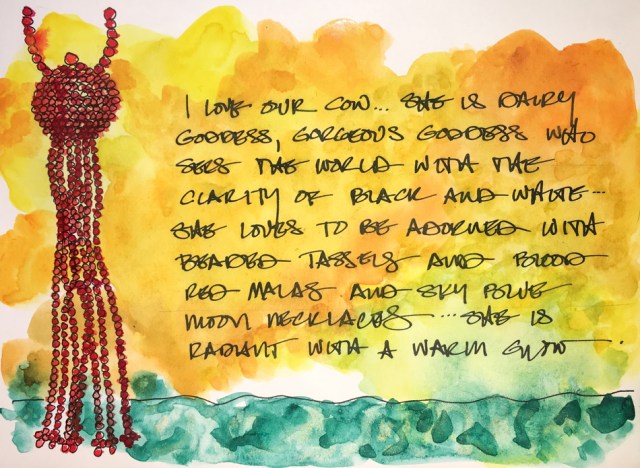 I LOVE OUR COW... SHE IS DAIRY
GODDESS, GORGEOUS GODDESS WHO
SEES THE WORLD WITH THE
CLARITY OF BLACK AND WHITE...
SHE LOVES TO BE ADORNED WITH
BEADED TASSELS AND BLOOD
RED MALAS AND SKY BLUE
MOON NECKLACES ... SHE IS
RADIANT WITH A WARM GLOW.